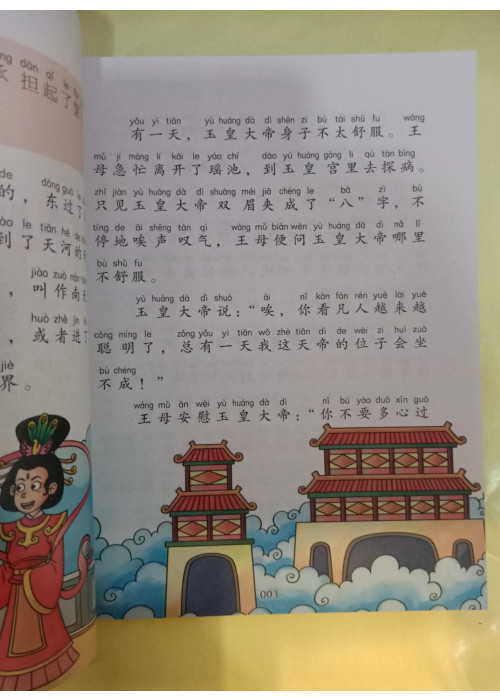 ng dān qǐ le
担起了
de dōng guò le
的，东过了
ào le tiān hé de
到了天河的
jiào zuò nán
，叫作南
huò zhě jìn
，或者进了
jiè
界。
yǒu yì tiān yù huáng dà dì shēn zi bú tài shū fu wáng
有一天，玉皇大帝身子不太舒服。王
mǔ jí máng lí kāi le yáo chí dào yù huáng gōng lǐ qù tàn bìng
母急忙离开了瑶池，到玉皇宫里去探病。
zhǐ jiàn yù huáng dà dì shuāng méi jiā chéng le bā zì bù
只见玉皇大帝双眉夹成了“八”字，不
tíng de āi shēng tàn qì wáng mǔ biàn wèn yù huáng dà dì nǎ lǐ
停地唉声叹气，王母便问玉皇大帝哪里
bù shū fu
不舒服。
yù huáng dà dì shuō āi nǐ kàn fán rén yuè lái yuè
玉皇大帝说：“唉，你看凡人越来越
cōng míng le zǒng yǒu yì tiān wǒ zhè tiān dì de wèi zi huì zuò
聪明了，总有一天我这天帝的位子会坐
bù chéng
不成！”
wáng mǔ ān wèi yù huáng dà dì nǐ bú yào duō xīn guò
王母安慰玉皇大帝：“你不要多心过
003